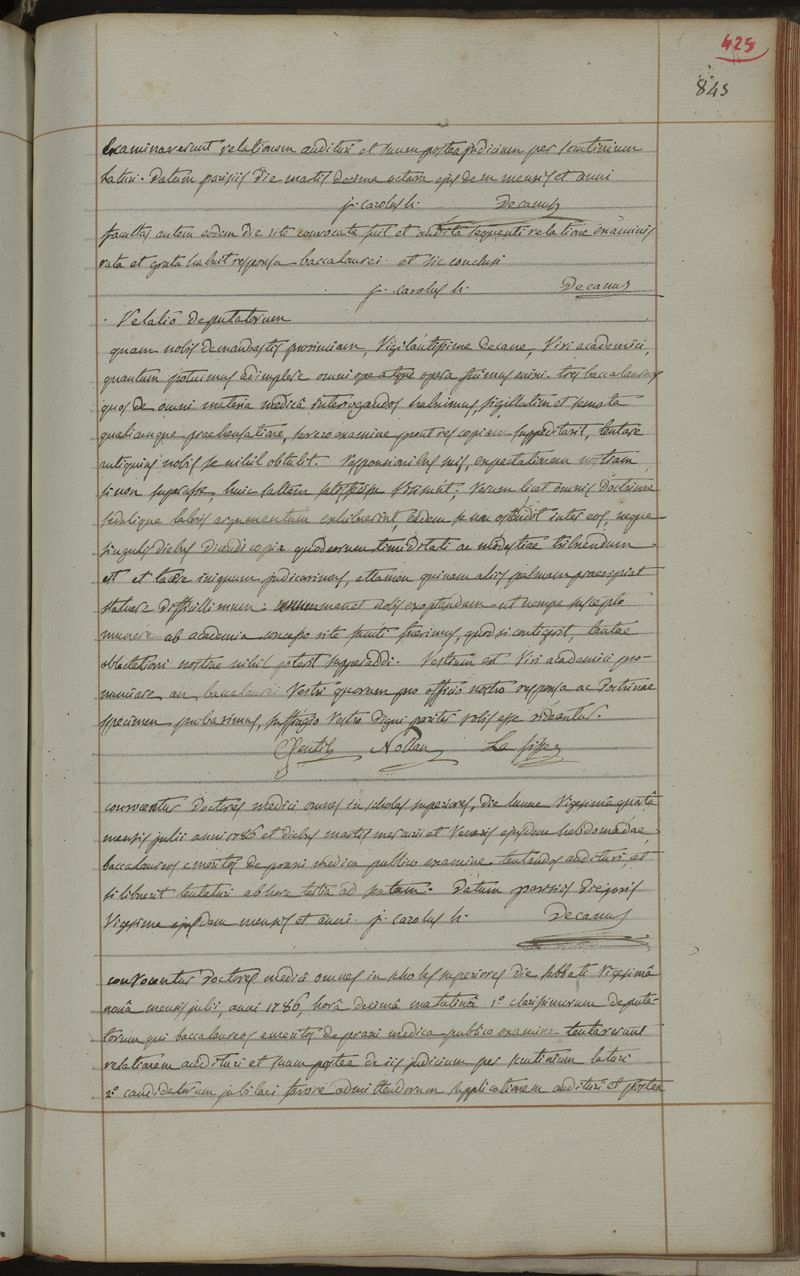 425
845
Examinaverunt relationem audituri et suum postea judicium per scrutinium
laturi. Datum parisiis die martis decima octava ejusdem mensis et anni
j. carolus h. Decanus
facultas autem eodem die rite convocata fuit et audita sequenti relatione examinis
rata et grata habuit responsa baccalaurei. et sic conclusi
j. carolus h. Decanus
Relatio deputatorum
quam nobis demandastis provinciam, Vigilantissime Decane, Viri academici,
quantum potuimus adimplere omni ope atque opera sumus nixi. tres baccalaureos
quos de omni materia medicâ interrogandos habuimus, sigillatim et remota
quacumque praehensatione, severo examine prout res copiam suppeditavit, tentare
antiquius nobis se nihil obtulit. responsionibus suis, expectationem nostram
si non superasse, huic saltem satisfecisse. Verum licet omnis doctrinae
sedulique laboris argumentum exhibuerint, eadem se non ostendit inter eos, neque
singulis diebus dicendi copia quod eorum timiditati ac modestiae tribuendum
est et tacere iniquum judicavimus, attamen quinam aliis palmam praeripiat
statuere difficillimum. manet nobis exoptandum ut nempe suscepto
munere ab academia concesso rite functi fuerimus, quod si contigerit, tantae
oblectationi nostrae nihil poterit superaddi. Vestrum est Viri academici pro-
nunciare, an baccalaurei Vestri quorum pro officio nostro responsa ac doctrinae
specimen probavimus, suffragio Vestro digni pariter vobis esse videantur.
Gentil Nollan La fisse
convocentur Doctores medici omnes in scholas superiores, die lunae Vigesimâ quartâ
mensis julii anni 1786 et diebus martis mercurii et Veneris ejusdem hebdomadae,
baccalaureos emeritos de praxi medica publico examine tentandos audituri, et
si libuerit tentaturi ab hora tertia ad sextam. Datum parisiis die jovis
Vigesima ejusdem mensis et anni. j. carolus h. Decanus
convocentur doctores medici omnes in scholas superiores die sabbati Vigesimâ
nonâ mensis julii, anni 1786, horâ decimâ matutinâ 1° clarissimorum deputa-
torum qui baccalaureos emeritos de praxi medica publico examine tentaverunt
relationem audituri et suum postea de iis judicium per scrutinium laturi
2° candidatorum jubilaei favore admittendorum supplicationem audituri et postea